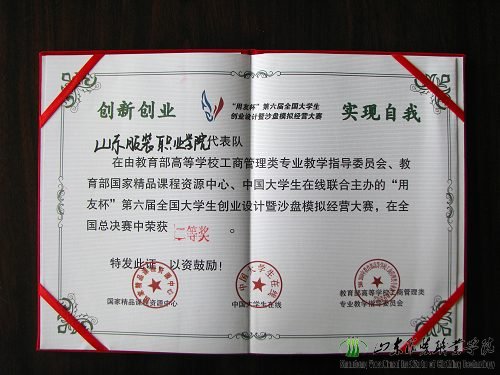 创新创业
"用友杯"第六届全国大学生
创业设计暨沙盘模拟经营大赛
实现自我
山东服装职业学院代表队
在由教育部高等学校工商管理类专业教学指导委员会、教
育部国家精品课程资源中心、中国大学生在线联合主办的"用
友杯"第六届全国大学生创业设计暨沙盘模拟经营大赛，在全
国总决赛中荣获 二等奖 。
特发此证，以资鼓励！
国家精品课程资源中心
中国大学生在线
教育部高等学校工商管理类
专业教学指导委员会
山东服装职业学院
Shandong Vocational Institute of Clothing Technology